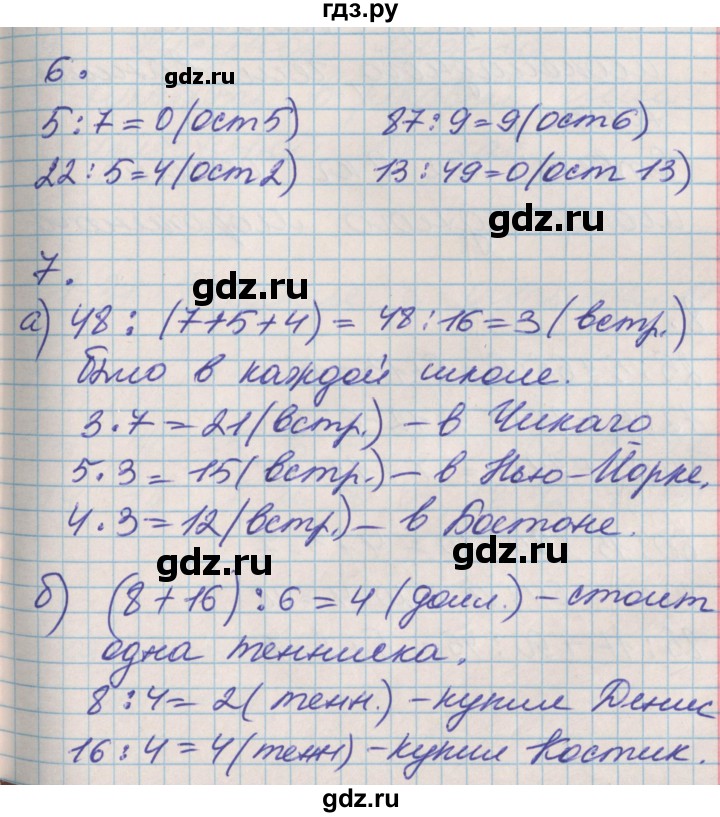 гдз.ру
6.
gdz.ru
5:7=0(ост5) 87:9=9(ост6)
22:5=4(ост2) 13:49=0(ост 13)
gdz.ru
7.
gdz.ru
а) 48:(7+5+4)=48:16=3(встр.)
было в каждой школе.
3·7=21(встр.)-в Чикаго
gdz.ru
5·3=15(встр.)-в Нью-Йорке,
4·3=12(встр.)-в Бостоне.
gdz.ru
gdz.ru
б) (8+16):6=4(долл.)-стоит
одна тенниска.
8:4=2(тенн.)-купил Денис
16:4=4(тенн)-купил Костик.
gdz.ru